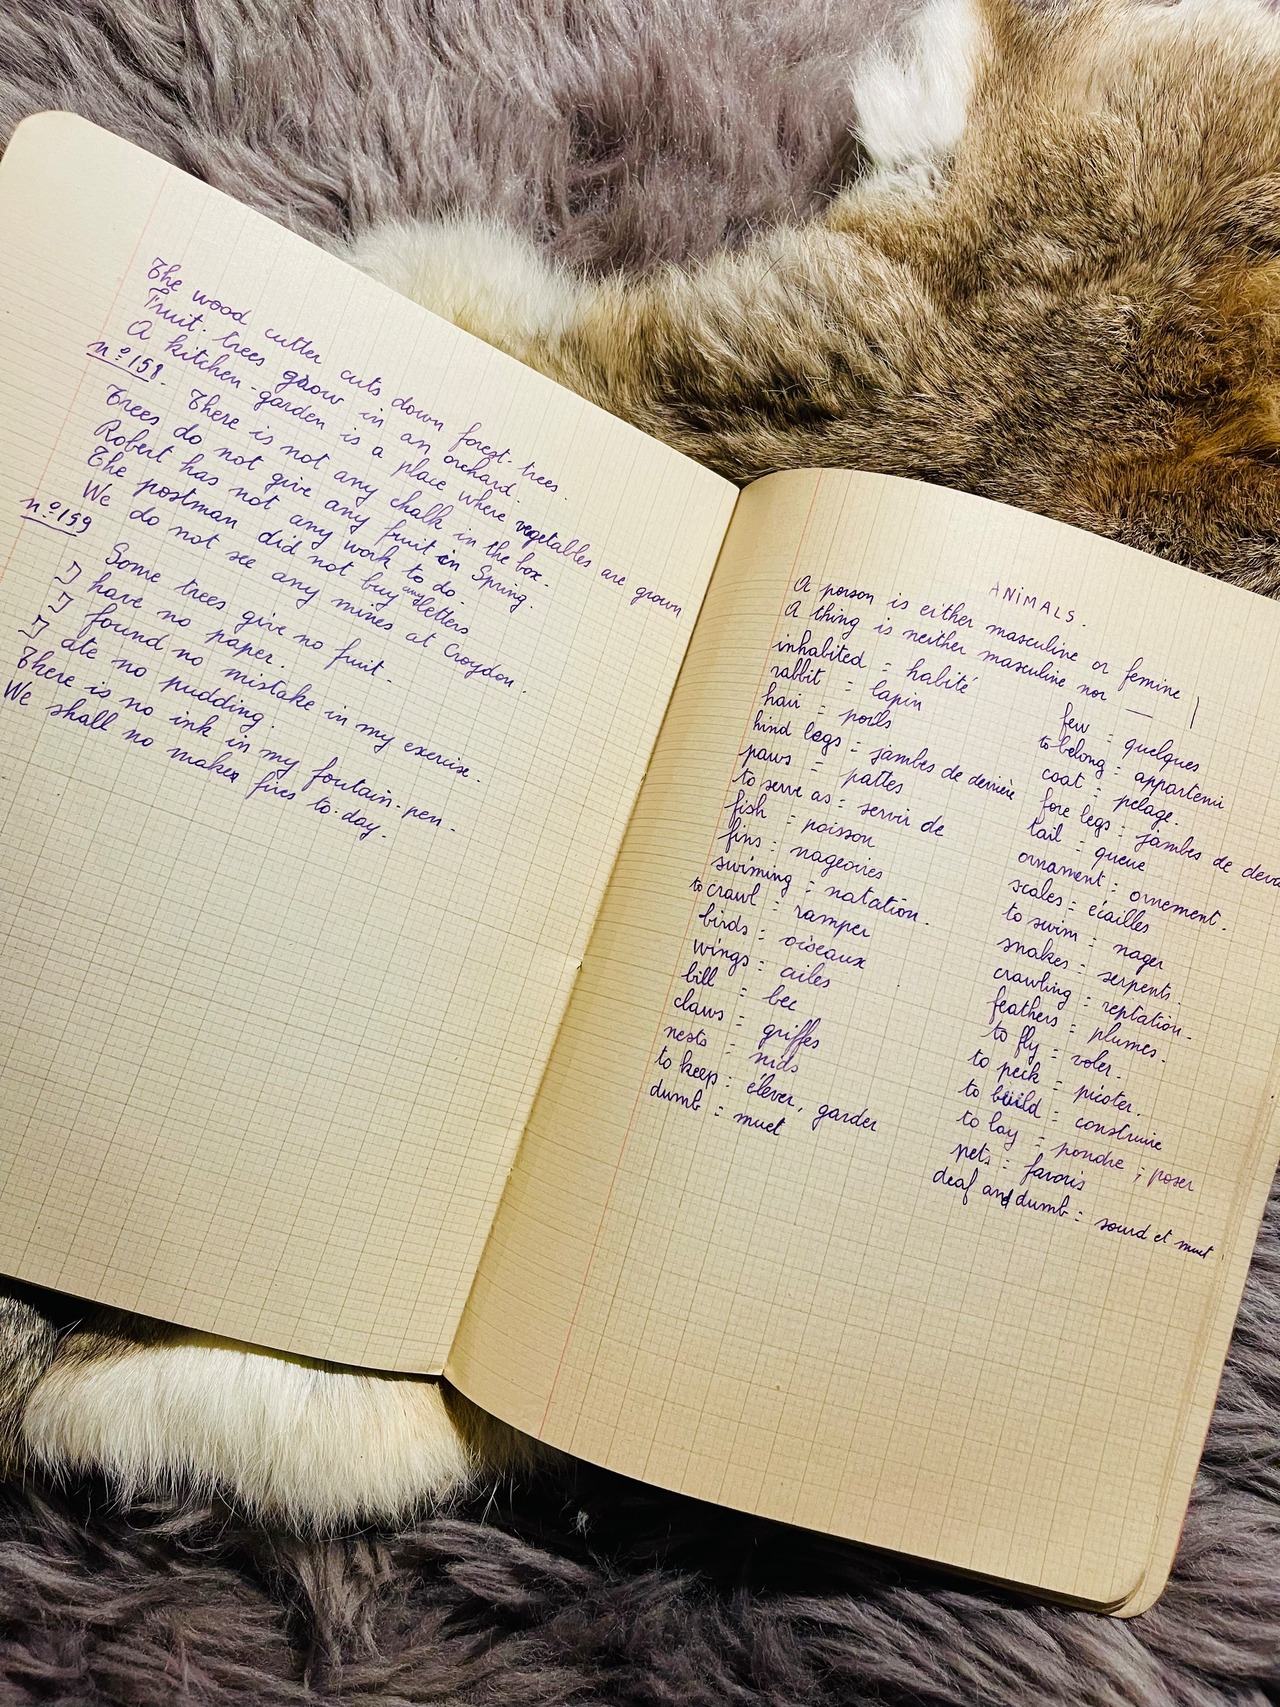 The wood cutter cuts down forest-trees.
Fruit-trees grow in an orchard.
A kitchen-garden is a place where vegetables are grown
n° 158. There is not any chalk in the box.
Trees do not give any fruit in Spring.
Robert has not any work to do.
The postman did not buy any letters
We do not see any mines at Croydon.
n° 159
Some trees give no fruit.
I have no paper.
I found no mistake in my exercise.
I ate no pudding.
There is no ink in my foutain-pen.
We shall no makes fires to-day.
ANIMALS.
A person is either masculine or femine
A thing is neither masculine nor —
inhabited = habité
rabbit = lapin
hair = poils
hind legs = jambes de derrière
paws = pattes
to serve as = servir de
fish = poisson
fins = nageoires
swiming = natation.
to crawl = ramper
birds = oiseaux
wings = ailes
bill = bec
claws = griffes
nests = nids
to keep = élever, garder
dumb = muet
few = quelques
to belong = appartenir
coat = pelage.
fore legs = jambes de
tail = queue
ornament = ornement.
scales = écailles
to swim = nager
snakes = serpents.
crawling = reptation.
feathers = plumes.
to fly = voler.
to peck = picoter.
to build = construire
to lay = pondre ; poser
pets = favoris
deaf and dumb = sourd et muet